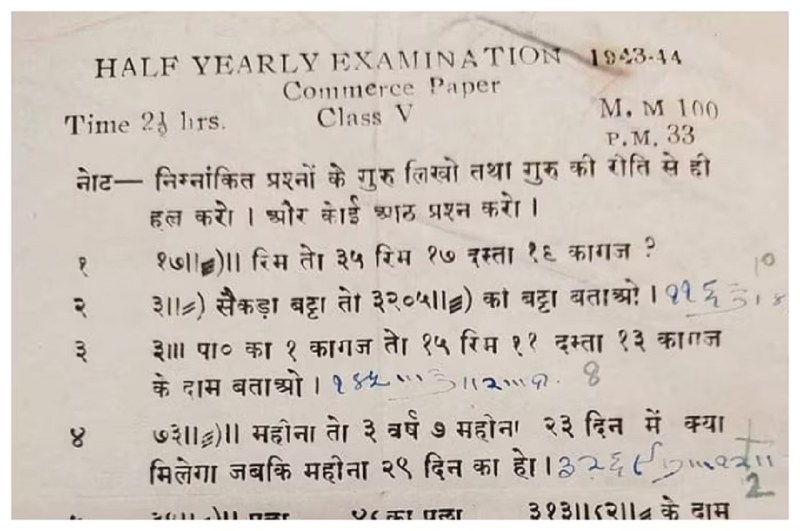 HALF YEARLY EXAMINATION 1943-44
Commerce Paper
Time 2½ hrs. Class V M. M 100
P.M. 33
नोट— निम्नांकित प्रश्नों के गुरु लिखो तथा गुरु की रीति से ही
हल करो । और कोई आठ प्रश्न करो ।
१ १७||≡)|| रिम तो ३५ रिम १७ दस्ता १६ कागज ?
10
२ ३||=) सैकड़ा बट्टा तो ३२०५||≡) का बट्टा बताओ ।
३ ३||| पा० का १ कागज तो १५ रिम ११ दस्ता १३ कागज
के दाम बताओ । 8
४ ७३||≡)|| महीना तो ३ वर्ष ७ महीना २३ दिन में क्या
मिलेगा जबकि महीना २९ दिन का हो ।
2
के दाम